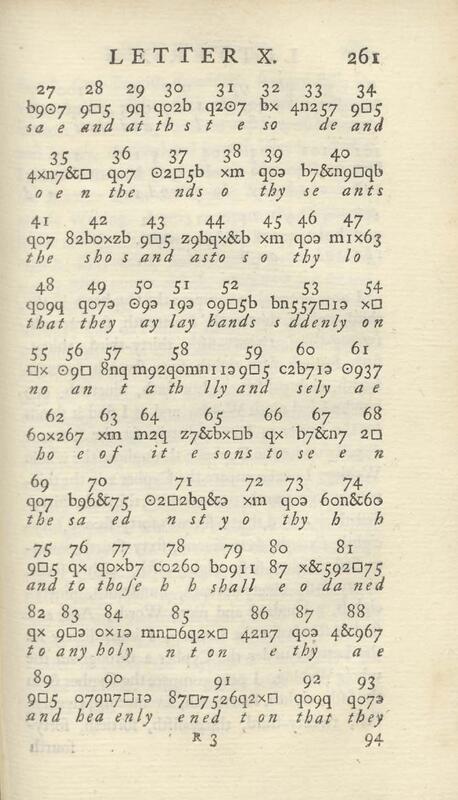 LETTER X. 261
27 28 29 30 31 32 33 34
b9ʘ7 9□5 9q qo2b q2ʘ7 bx 4n257 9□5
sa e and at th s t e so de and
35 36 37 38 39 40
4xn7&□ qo7 ʘ2□5b xm qoə b7&n9□qb
o e n the nds o thy se ants
41 42 43 44 45 46 47
qo7 82boxzb 9□5 z9bqx&b xm qoə m1x63
the sho s and asto s o thy lo
48 49 50 51 52 53 54
qo9q qo7ə ʘ9ə 19ə o9□5b bn557□1ə x□
that they ay lay hands s ddenly on
55 56 57 58 59 60 61
□x ʘ9□ 8nq m92qomn11ə 9□5 c2b71ə ʘ937
no an t a th lly and sely a e
62 63 64 65 66 67 68
6ox267 xm m2q z7&bx□b qx b7&n7 2□
ho e of it e sons to se e n
69 70 71 72 73 74
qo7 b96&75 ʘ2□2bq&ə xm qoə 6on&60
the sa ed n st y o thy h h
75 76 77 78 79 80 81
9□5 qx qoxb7 co260 bo911 87 x&592□75
and to thoſe h h shall e o da ned
82 83 84 85 86 87 88
qx 9□ə ox1ə mn□6q2x□ 42n7 qoə 4&967
to any holy n t on e thy a e
89 90 91 92 93
9□5 o79n7□1ə 87□7526q2x□ qo9q qo7ə
and hea enly ened t on that they
R 3 94